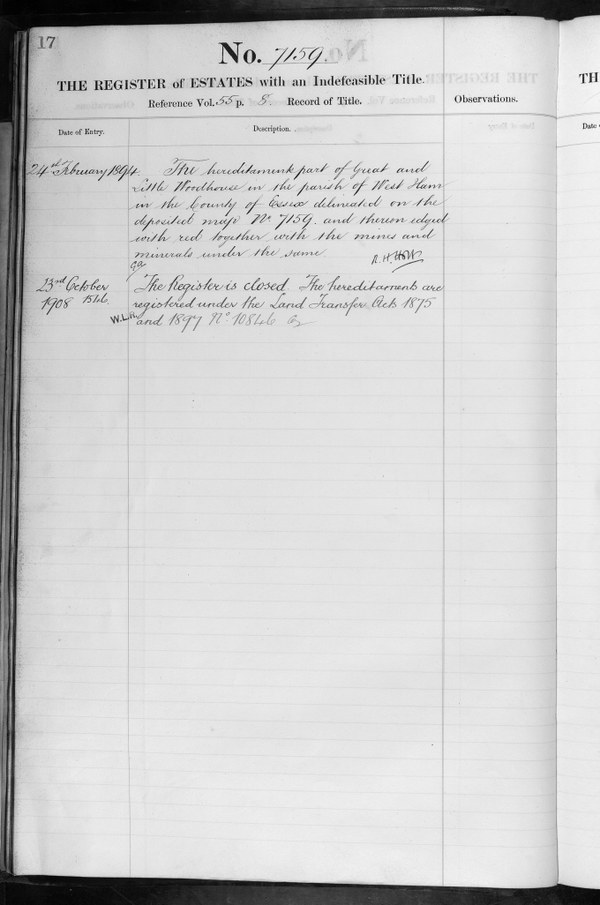 17
No. 7159.
THE REGISTER of ESTATES with an Indefeasible Title.
Reference Vol. 55 p. 8. Record of Title.
Observations.
Date of Entry.
Description.
24th February 1894.
The hereditaments part of Great and
Little Woodhouse in the parish of West Ham
in the County of Essex delineated on the
deposited map No. 7159. and thereon edged
with red together with the mines and
minerals under the same
R.H.
23rd October
1908 1546
The Register is closed. The hereditaments are
registered under the Land Transfer Acts 1875
W.L.
and 1897 No. 10846
TH
Date